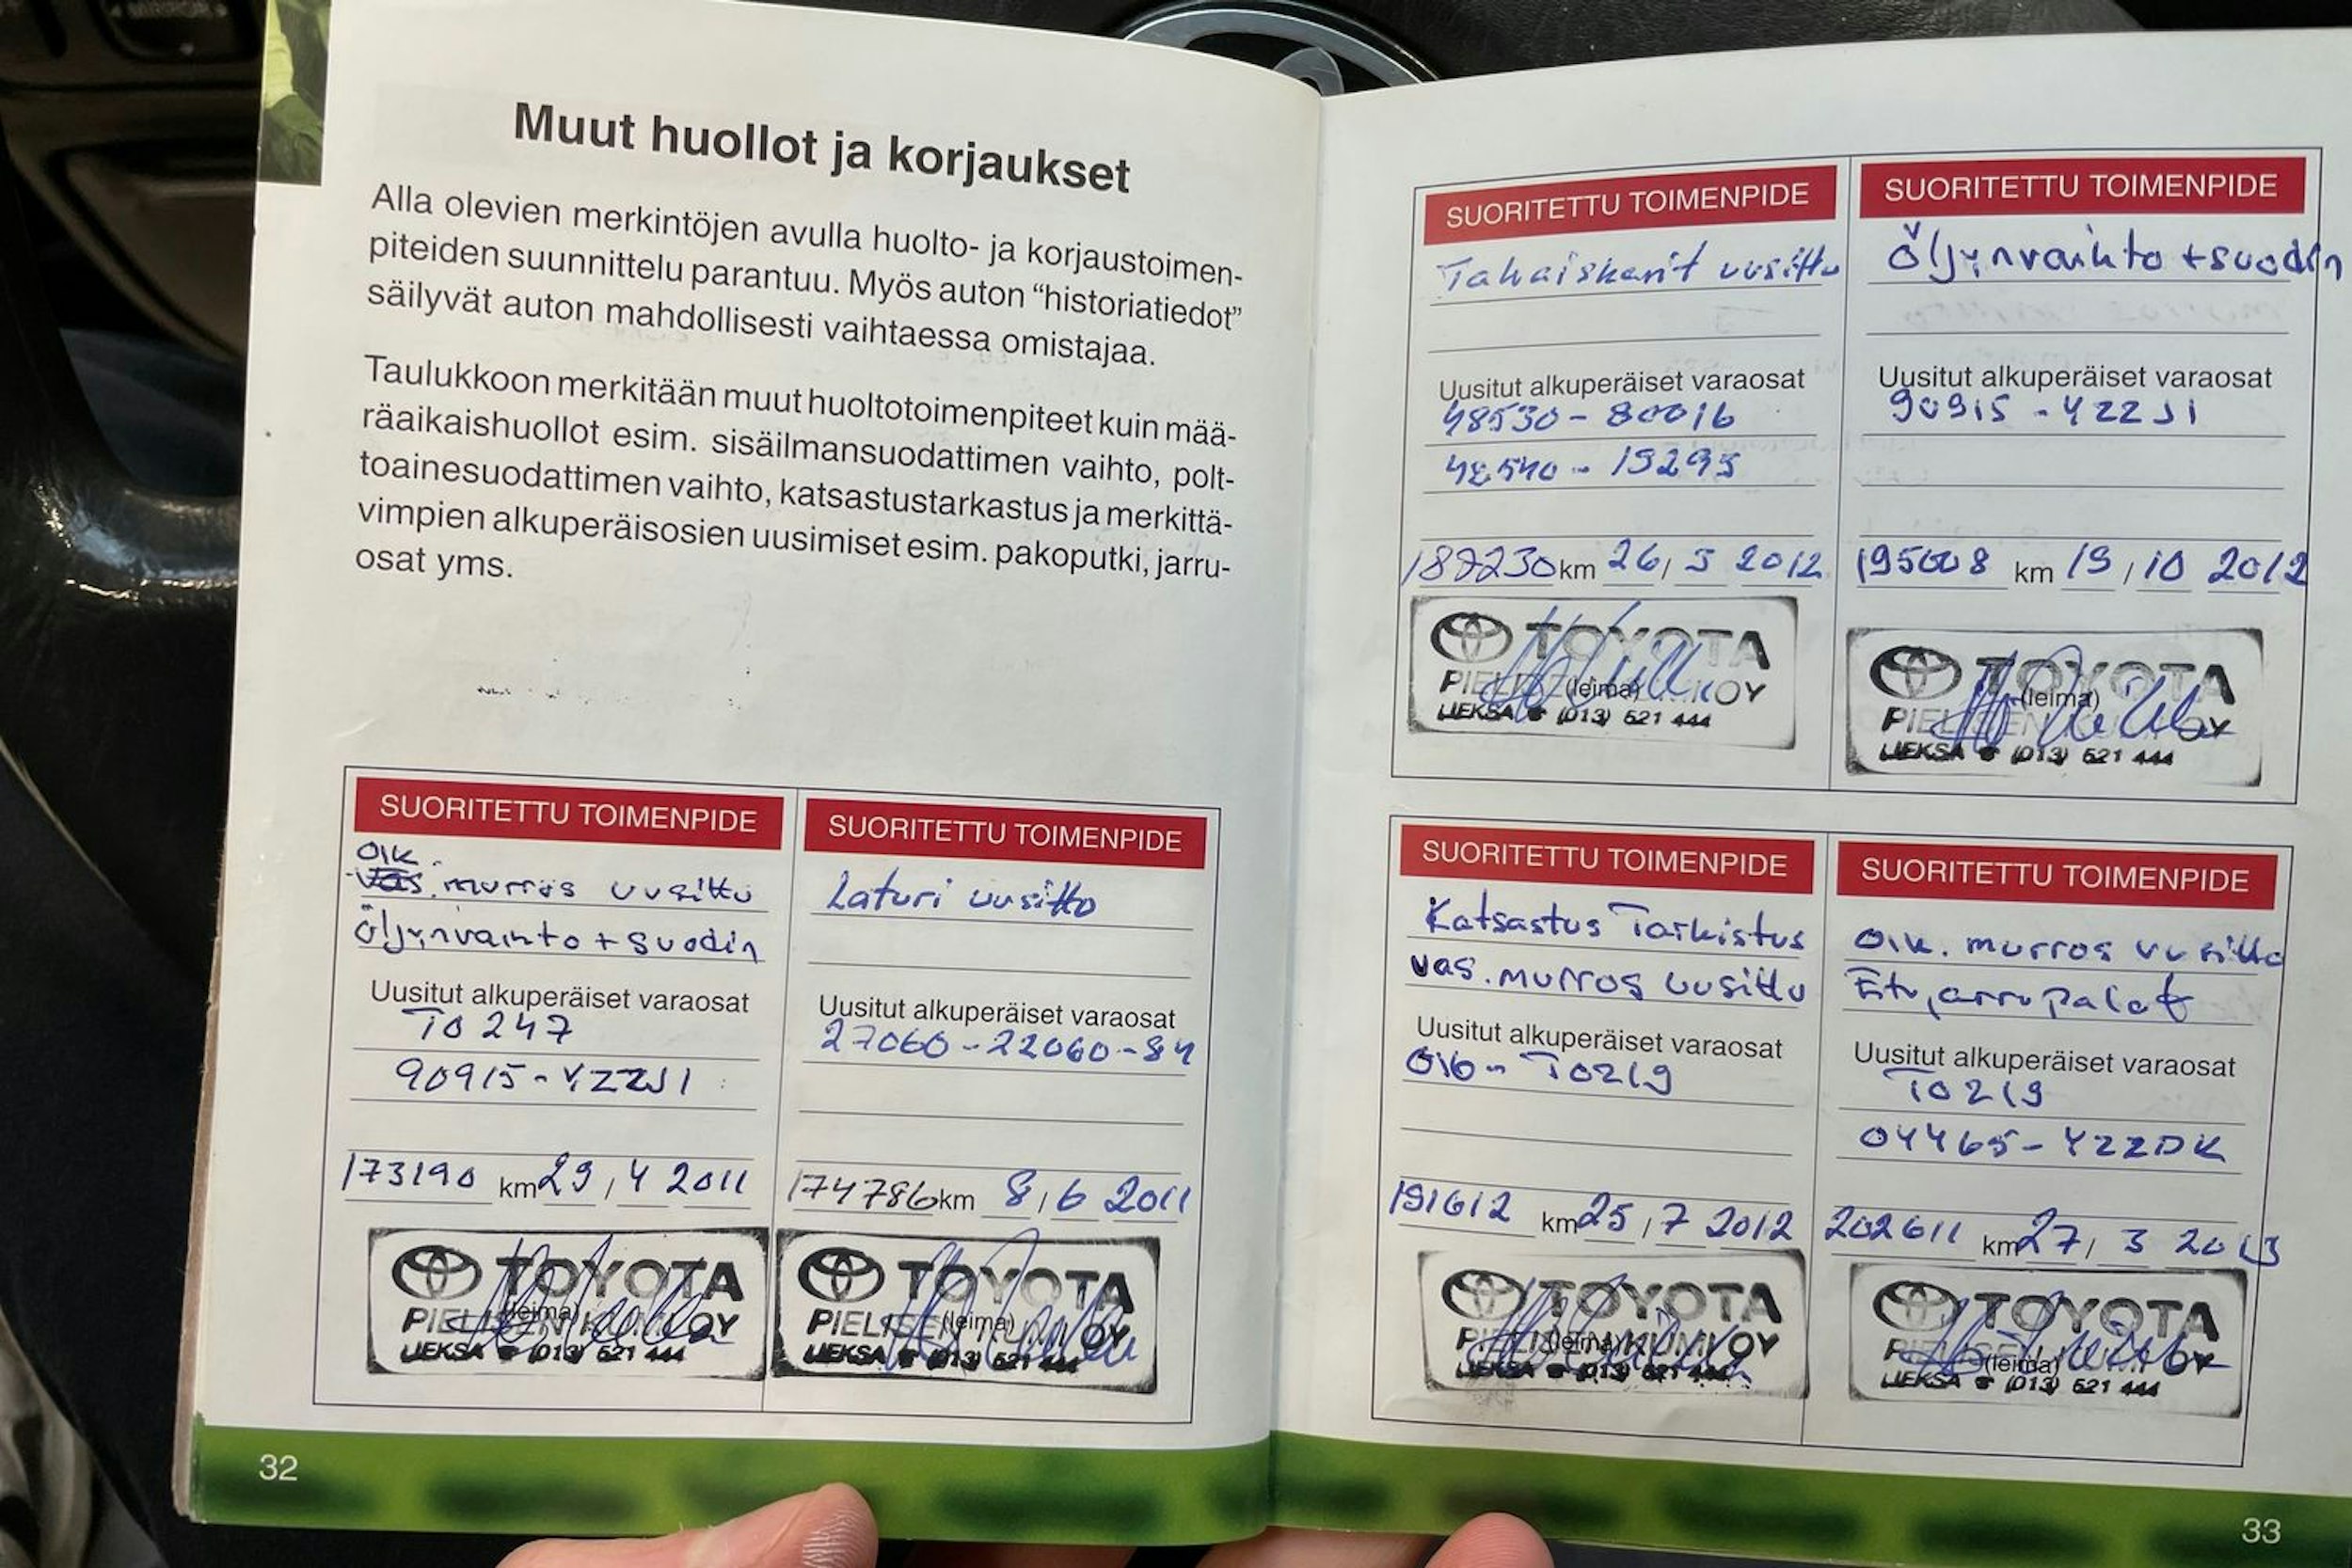 Muut huollot ja korjaukset
Alla olevien merkintöjen avulla huolto- ja korjaustoimen-
piteiden suunnittelu parantuu. Myös auton “historiatiedot”
säilyvät auton mahdollisesti vaihtaessa omistajaa.
Taulukkoon merkitään muut huoltotoimenpiteet kuin mää-
räaikaishuollot esim. sisäilmansuodattimen vaihto, polt-
toainesuodattimen vaihto, katsastustarkastus ja merkittä-
vimpien alkuperäisosien uusimiset esim. pakoputki, jarru-
osat yms.
SUORITETTU TOIMENPIDE
oik.
vas. murros uusittu
öljynvaihto + suodin
Uusitut alkuperäiset varaosat
TO 247
90915-YZZJ1
173190 km 29 / 4 2011
TOYOTA
PIELISEN KUMI OY
(leima)
LIEKSA ☎ (013) 521 444
SUORITETTU TOIMENPIDE
Laturi uusittu
Uusitut alkuperäiset varaosat
27060-22060-84
174786 km 8 / 6 2011
TOYOTA
PIELISEN KUMI OY
(leima)
LIEKSA ☎ (013) 521 444
32
SUORITETTU TOIMENPIDE
Takaiskarit uusittu
Uusitut alkuperäiset varaosat
48530-80016
48540-19295
km 26 / 3 2012
TOYOTA
(leima) OY
LIEKSA ☎ (013) 521 444
SUORITETTU TOIMENPIDE
Öljynvaihto + suodin
Uusitut alkuperäiset varaosat
90915-YZZJ1
195008 km 19 / 10 2012
TOYOTA
(leima)
PIELISEN OY
LIEKSA ☎ (013) 521 444
SUORITETTU TOIMENPIDE
Katsastus Tarkistus
vas. murros uusittu
Uusitut alkuperäiset varaosat
TO219
191612 km 25 / 7 2012
TOYOTA
PIELISEN KUMI OY
(leima)
LIEKSA ☎ (013) 521 444
SUORITETTU TOIMENPIDE
Oik. murros uusittu
Etujarrupalat
Uusitut alkuperäiset varaosat
TO219
04465-YZZDK
202611 km 27 / 3 2013
TOYOTA
PIELISEN KUMI OY
(leima)
LIEKSA ☎ (013) 521 444
33